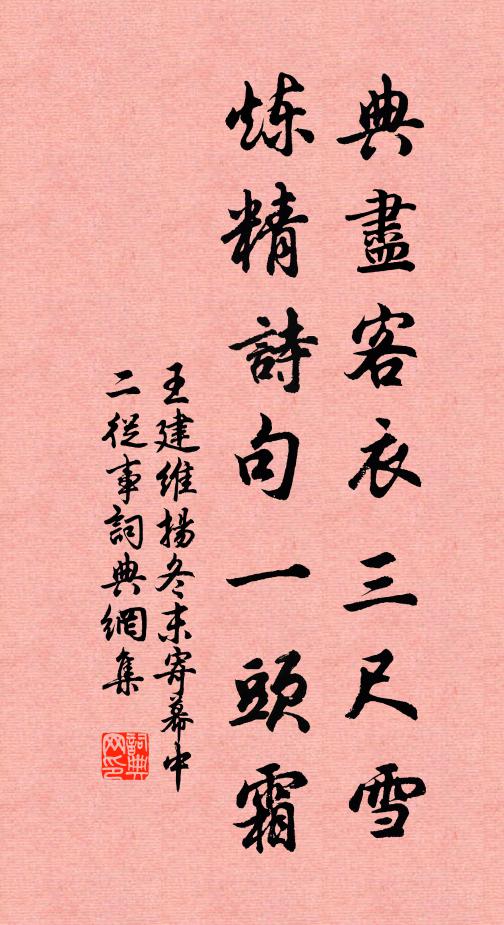 典盡客衣三尺雪
炼精詩句一頭霜
王建維揚冬末寄幕中
二從事詞典網集
詞典網印